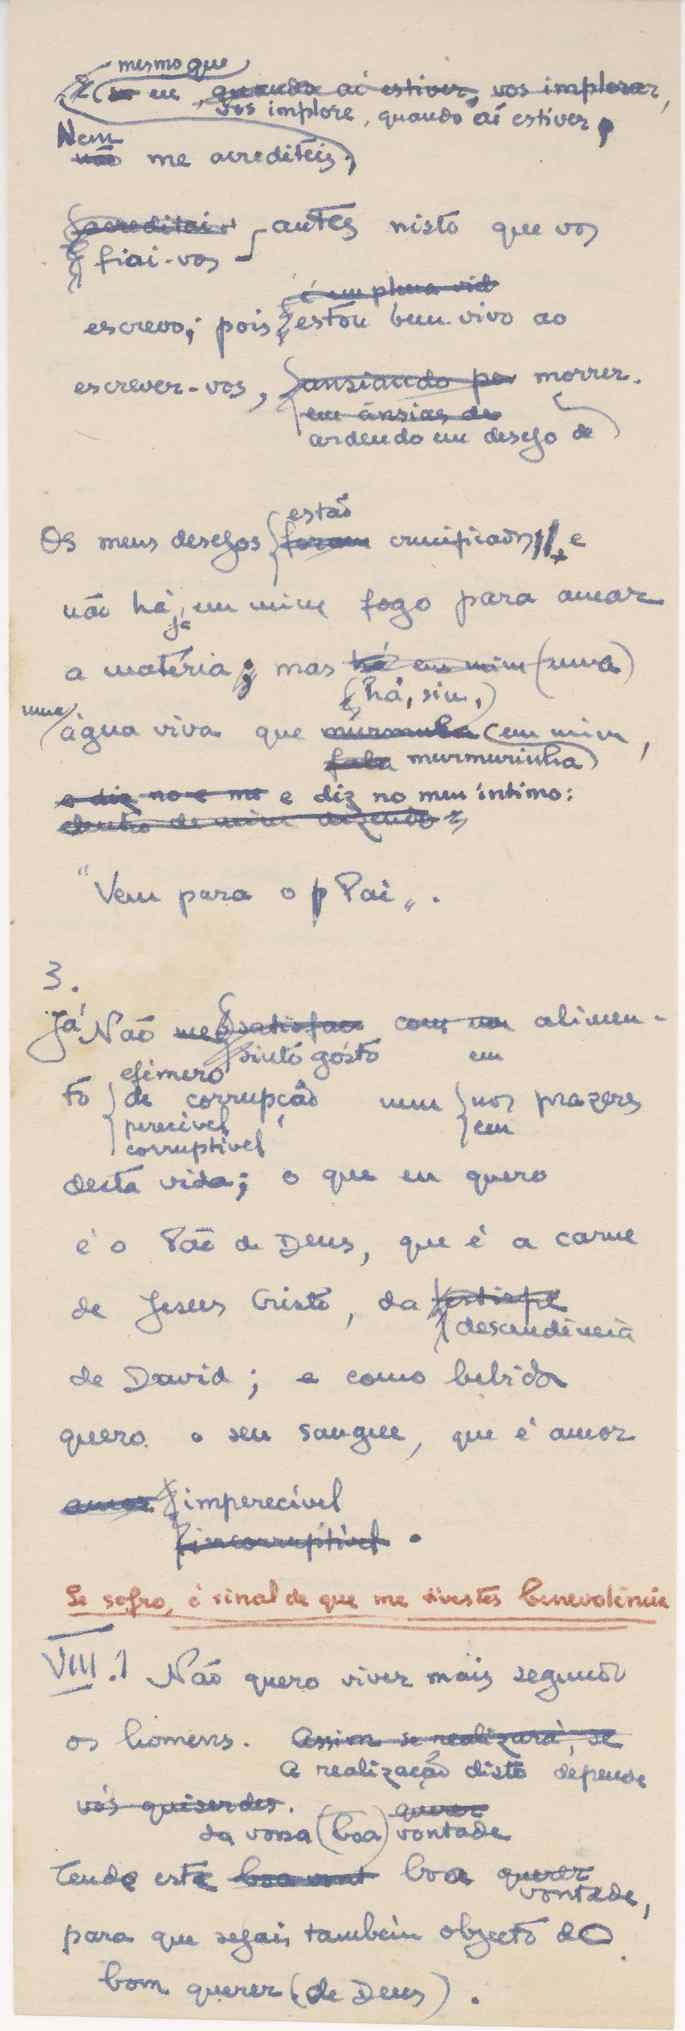 mesmo que
E (se eu quando aí estiver, vos implorar,
vos implore, quando aí estiver,
Nem
não me acrediteis;
acreditai antes nisto que vos
fiai-vos
é em plena vid
escrevo; pois estou bem vivo ao
escrever-vos, ansiando po morrer.
em ânsias de
ardendo em desejo de
estão
Os meus desejos foram crucificados, e
não há em mim fogo para amar
já
a matéria; mas há em mim (uma)
(há, sim,)
uma água viva que murmura (em mim,
fala murmurinha)
e diz no e me e diz no meu íntimo:
dentro de mim dizendo
"Vem para o p Pai".
3.
Já Não me satisfaço com um alimen-
sinto gôsto em
efémero
to de corrupção nem nos prazeres
perecível em
corruptível
desta vida; o que eu quero
é o Pão de Deus, que é a carne
de Jesus Cristo, da estirpe
descendência
de David; e como bebida
quero o seu sangue, que é amor
amor imperecível
incorruptível.
Se sofro, é sinal de que me tivestes benevolência
VIII.1 Não quero viver mais segundo
os homens. Assim se realizará, se
A realização disto depende
vós quiserdes. querer
da vossa (boa) vontade
Tende esta boa vont boa querer
vontade,
para que sejais também objecto do
bom querer (de Deus).